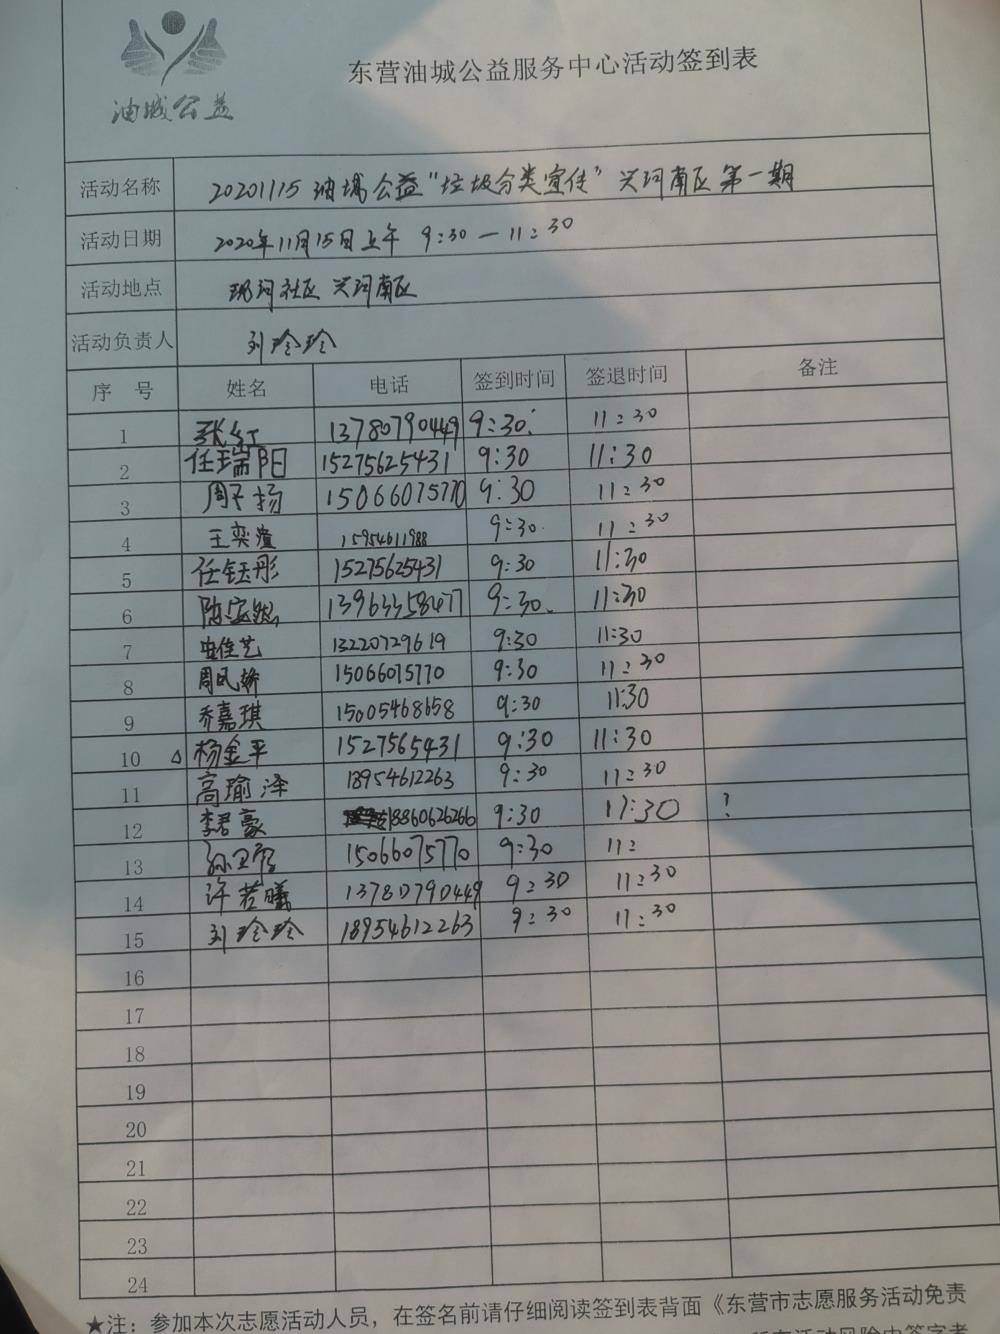 油城公益
东营油城公益服务中心活动签到表
活动名称 20201115 油城公益"垃圾分类宣传"兴河南区第一期
活动日期 2020年11月15日上午 9:30—11:30
活动地点 现河社区 兴河南区
活动负责人 刘玲玲
序 号 姓名 电话 签到时间 签退时间 备注
1 张红 13780790449 9:30 11:30
2 任瑞阳 15275625431 9:30 11:30
3 周子扬 15066075770 9:30 11:30
4 王奕渲 15954611988 9:30 11:30
5 任钰彤 15275625431 9:30 11:30
6 陈 13963358477 9:30 11:30
7 佳艺 13220729619 9:30 11:30
8 周凤娇 15066075770 9:30 11:30
9 乔嘉琪 15005468658 9:30 11:30
10 △ 杨金平 1527565431 9:30 11:30
11 高瑜泽 18954612263 9:30 11:30
12 李君豪 18860626266 9:30 11:30 ?
13 孙卫 15066075770 9:30 11:
14 许若曦 13780790449 9:30 11:30
15 刘玲玲 18954612263 9:30 11:30
16
17
18
19
20
21
22
23
24
★注：参加本次志愿活动人员，在签名前请仔细阅读签到表背面《东营市志愿服务活动免责